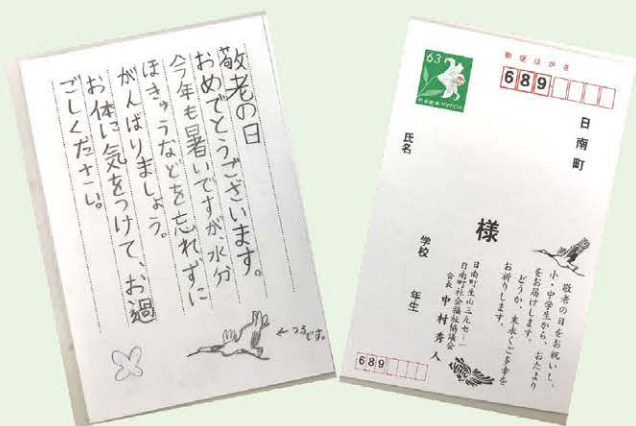 敬老の日
おめでとうございます。
今年も暑いですが水分
ほきゅうなどを忘れずに
がんばりましょう。
お体に気をつけて、お過
ごしください。
←つるです。
63
NIPPON
郵便はがき
689
日南町
様
氏名
学校　年生
敬老の日をお祝いし、
小・中学生から、おたより
をお届けします。
どうか、末永くご多幸を
お祈りします。
日南町社会福祉協議会
会長 中村秀人
689